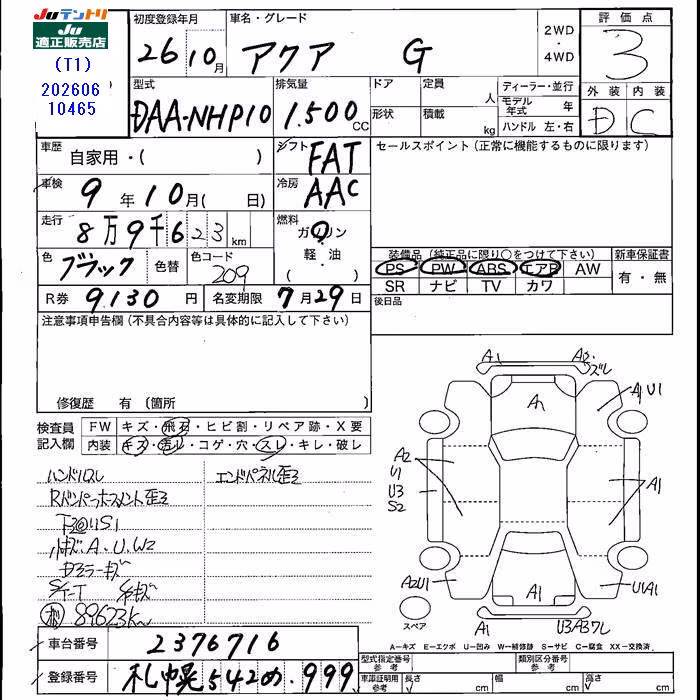 Juテントリ
Ju
適正販売店
(T1)
202606
10465
初度登録年月
26 10月
車名・グレード
アクア G
2WD
・
4WD
評価点
3
型式
DAA-NHP10
排気量
1,500 CC
ドア
定員
人
形状
積載
kg
ディーラー・並行
モデル年式 年
ハンドル 左・右
外装 内装
D C
車歴
自家用・( )
シフト
FAT
車検
9年10月( 日)
冷房
AAC
走行
8万9千623 km
燃料
ガソリン
・
軽油
・
( )
色
ブラック
色替
色コード
209
R券 9130円
名変期限 7月29日
セールスポイント(正常に機能するものに限ります)
装備品(純正品に限り○をつけて下さい)
PS PW ABS エアB AW
SR ナビ TV カワ
新車保証書
有・無
後日品
注意事項申告欄(不具合内容等は具体的に記入して下さい)
修復歴 有(箇所 )
検査員
記入欄
FW キズ・飛石・ヒビ割・リペア跡・X要
内装 キズ・汚ル・コゲ・穴・スレ・キレ・破レ
ハンドルスレ
エンドパネル歪ミ
Rバンパーホースメント歪ミ
A.U.W2
89623km
A1
A2・ズレ
A1
A1U1
A2
U1
U3
S2
A1
A2U1
A1
U1A1
スペア
A1
U3A3ズレ
A-キズ E-エクボ U-凹み W-補修跡 S-サビ C-腐食 XX-交換済
車台番号 2376716
登録番号 札幌542め・999
型式指定番号
参考
類別区分番号
参考
車庫証明用
参考
長さ
cm
幅
cm
高さ
cm